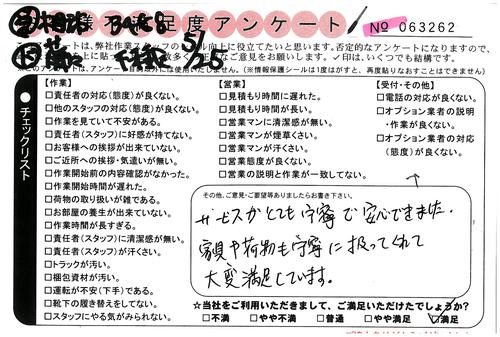 様満足度アンケート
No 063262
5/25
ートは、弊社作業スタッフのスキル向上に役立てたいと思います。否定的なアンケートになりますので、
ご意見をお願いします。✓印は、いくつでも結構です。
※このアンケートは、アンケート目的以外には使用いたしません。(※情報保護シールは1度はがすと、再度貼りなおすことはできません)
●チェックリスト
【作業】
□責任者の対応(態度)が良くない。
□他のスタッフの対応(態度)が良くない。
□作業を見ていて不安がある。
□責任者(スタッフ)に好感が持てない。
□お客様への挨拶が出来ていない。
□ご近所への挨拶・気遣いが無い。
□作業開始前の内容確認がなかった。
□作業開始時間が遅れた。
□荷物の取り扱いが雑である。
□お部屋の養生が出来ていない。
□作業時間が長すぎる。
□責任者(スタッフ)に清潔感が無い。
□責任者(スタッフ)が汗くさい。
□トラックが汚い。
□梱包資材が汚い。
□運転が不安(下手)である。
□靴下の履き替えをしてない。
□スタッフにやる気がみられない。
【営業】
□見積もり時間に遅れた。
□見積もり時間が長い。
□営業マンに清潔感が無い。
□営業マンが煙草くさい。
□営業マンが汗くさい。
□営業態度が良くない。
□営業の説明と作業が一致してない。
【受付・その他】
□電話の対応が良くない。
□オプション業者の説明
・作業が良くない。
□オプション業者の対応
(態度)が良くない。
その他、ご意見・ご要望等ありましたらお書き下さい。
サービスがとても丁寧で安心できました。
家具や荷物も丁寧に扱ってくれて
大変満足しています。
☆当社をご利用いただきまして、ご満足いただけたでしょうか?
□不満 □やや不満 □普通 □やや満足 ☑満足